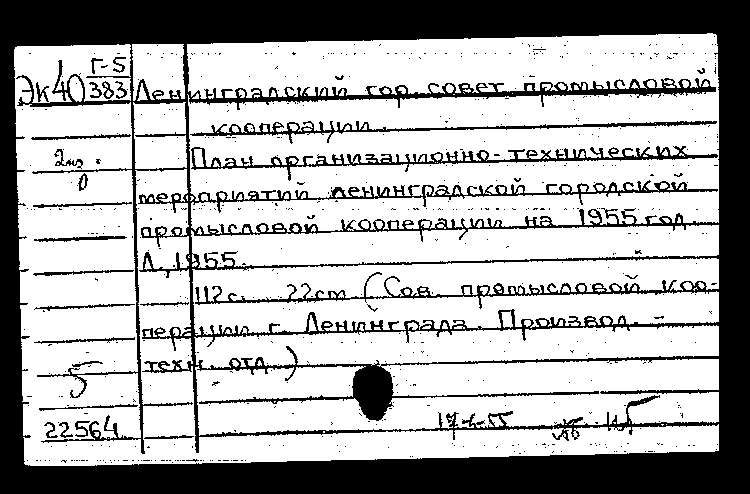 Эк40 Г-5
383 Ленинградский гор. совет промысловой
кооперации.
2 экз. План организационно-технических
0 мероприятий ленинградской городской
промысловой кооперации на 1955 год.
Л., 1955.
112 с. 22 cm (Сов. промысловой коо-
перации г. Ленинграда. Производ.-
5 техн. отд.)
22564